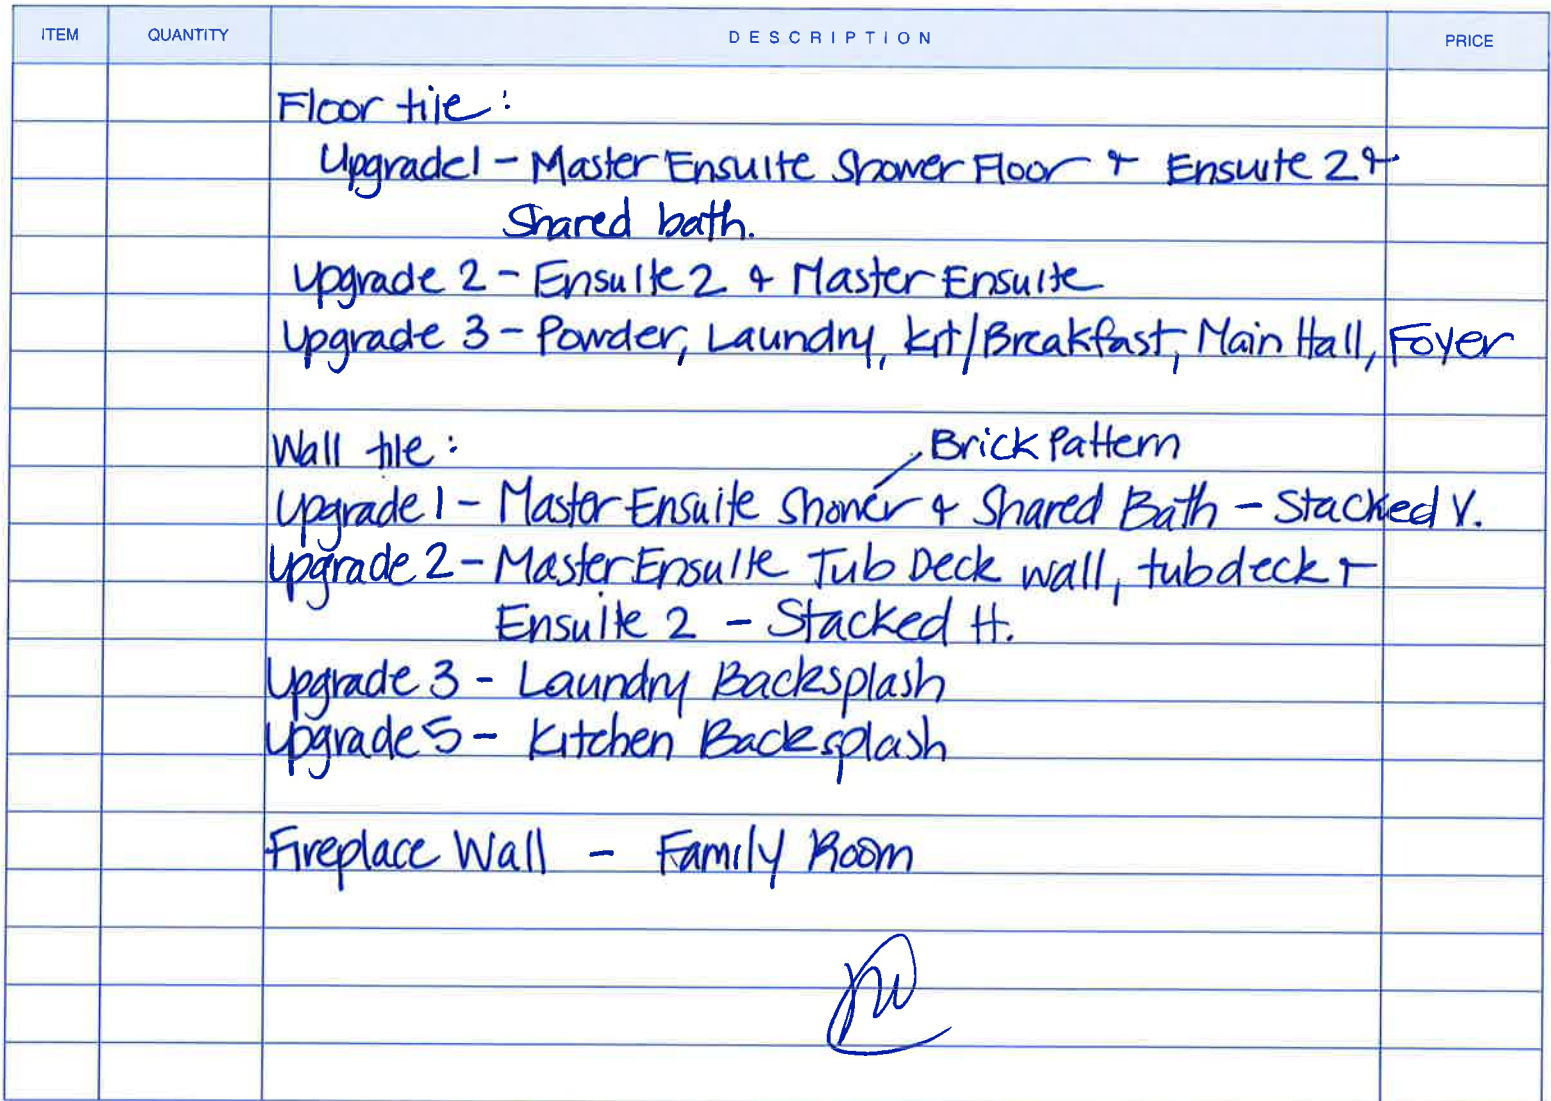 ITEM QUANTITY DESCRIPTION PRICE
Floor tile:
Upgrade1 - Master Ensuite Shower Floor + Ensuite 2 +
Shared bath.
Upgrade 2 - Ensuite 2 + Master Ensuite
Upgrade 3 - Powder, Laundry, kit/Breakfast, Main Hall, Foyer
Wall tile:
Brick Pattern
Upgrade 1 - Master Ensuite Shower + Shared Bath - Stacked V.
Upgrade 2 - Master Ensuite Tub Deck wall, tubdeck +
Ensuite 2 - Stacked H.
Upgrade 3 - Laundry Backsplash
Upgrade 5 - Kitchen Backsplash
Fireplace Wall - Family Room